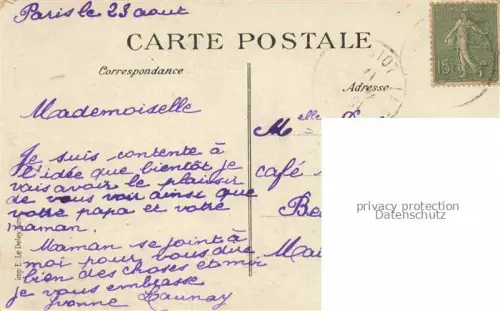 Paris le 23 aout
CARTE POSTALE
Correspondance
Adresse
Mademoiselle
Je suis contente à
l'idée que bientôt je
vais avoir le plaisir
de vous voir ainsi que
votre papa et votre
maman.
Maman se joint à
moi pour vous dire
bien des choses et moi
je vous embrasse
Yvonne Launay
Melle
café
Be
Mai
imp. E. Le Deley
15c
privacy protection
Datenschutz